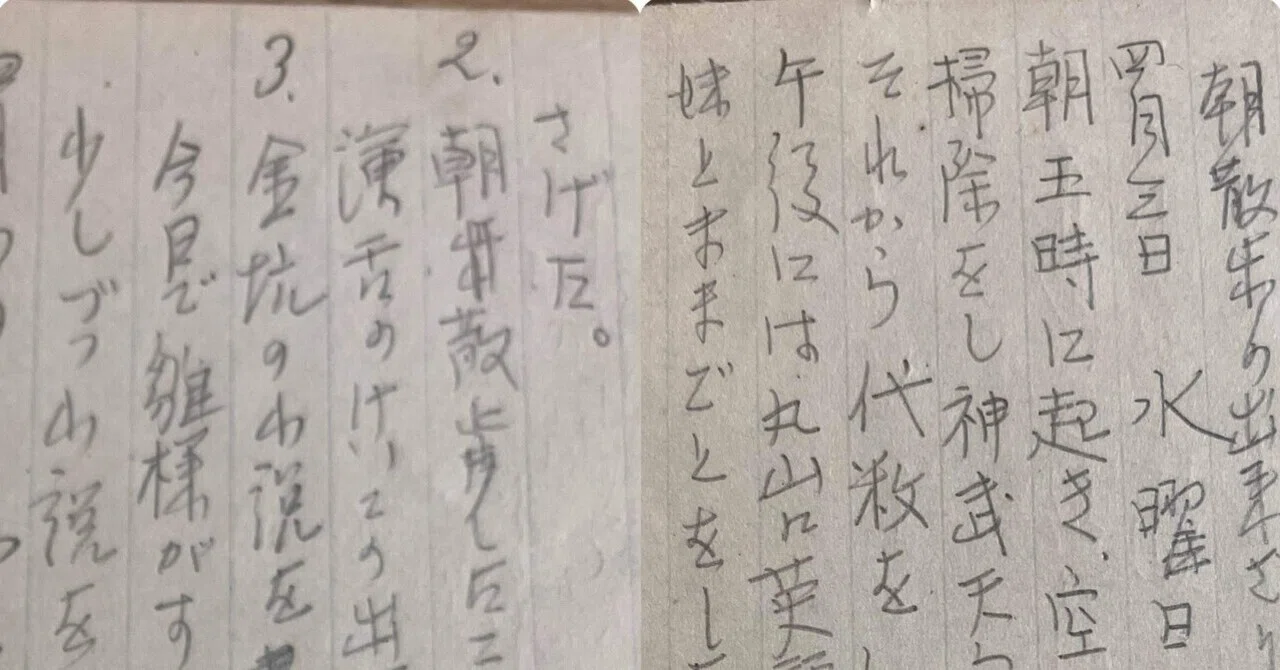 さげた。
2. 朝井散歩した
演舌のけいこの出
3. 金坑の小説を
今日で雛様がす
少しづつ小説を
朝散歩の出来
四月三日 水曜日
朝五時に起き、空
掃除をし神武天
それから代数を
午後には丸山に英
妹とままごとをし